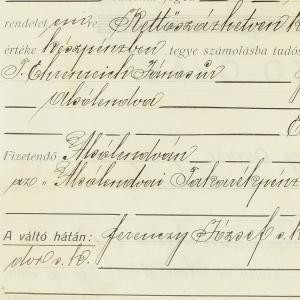 rendelet Kettőszázhetven K
értéke készpénzben tegye számolásba tudós
T. Ehrenreich János úr
Alsólendva
E
Fizetendő Alsólendván
Alsólendvai Takarékpénz
A váltó hátán: Ferenczy József s. k.
dor s. k.